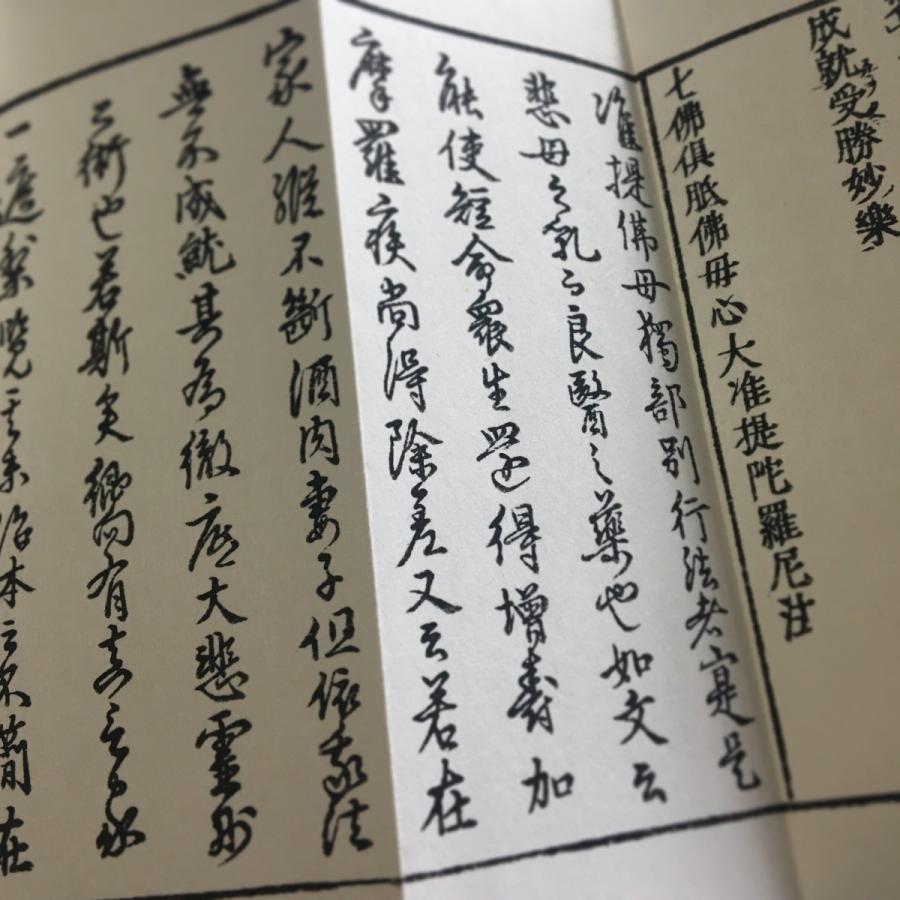 成就受勝妙樂
七佛俱胝佛母心大准提陀羅尼法
准提佛母獨部別行法者寔是
悲母之乳乃良醫之藥也如文云
能使短命眾生還得增壽加
摩羅疾尚得除差又云若在
家人縱不斷酒肉妻子但依我法
無不成就其為徹底大悲靈
術也若斯矣有
本云不簡在